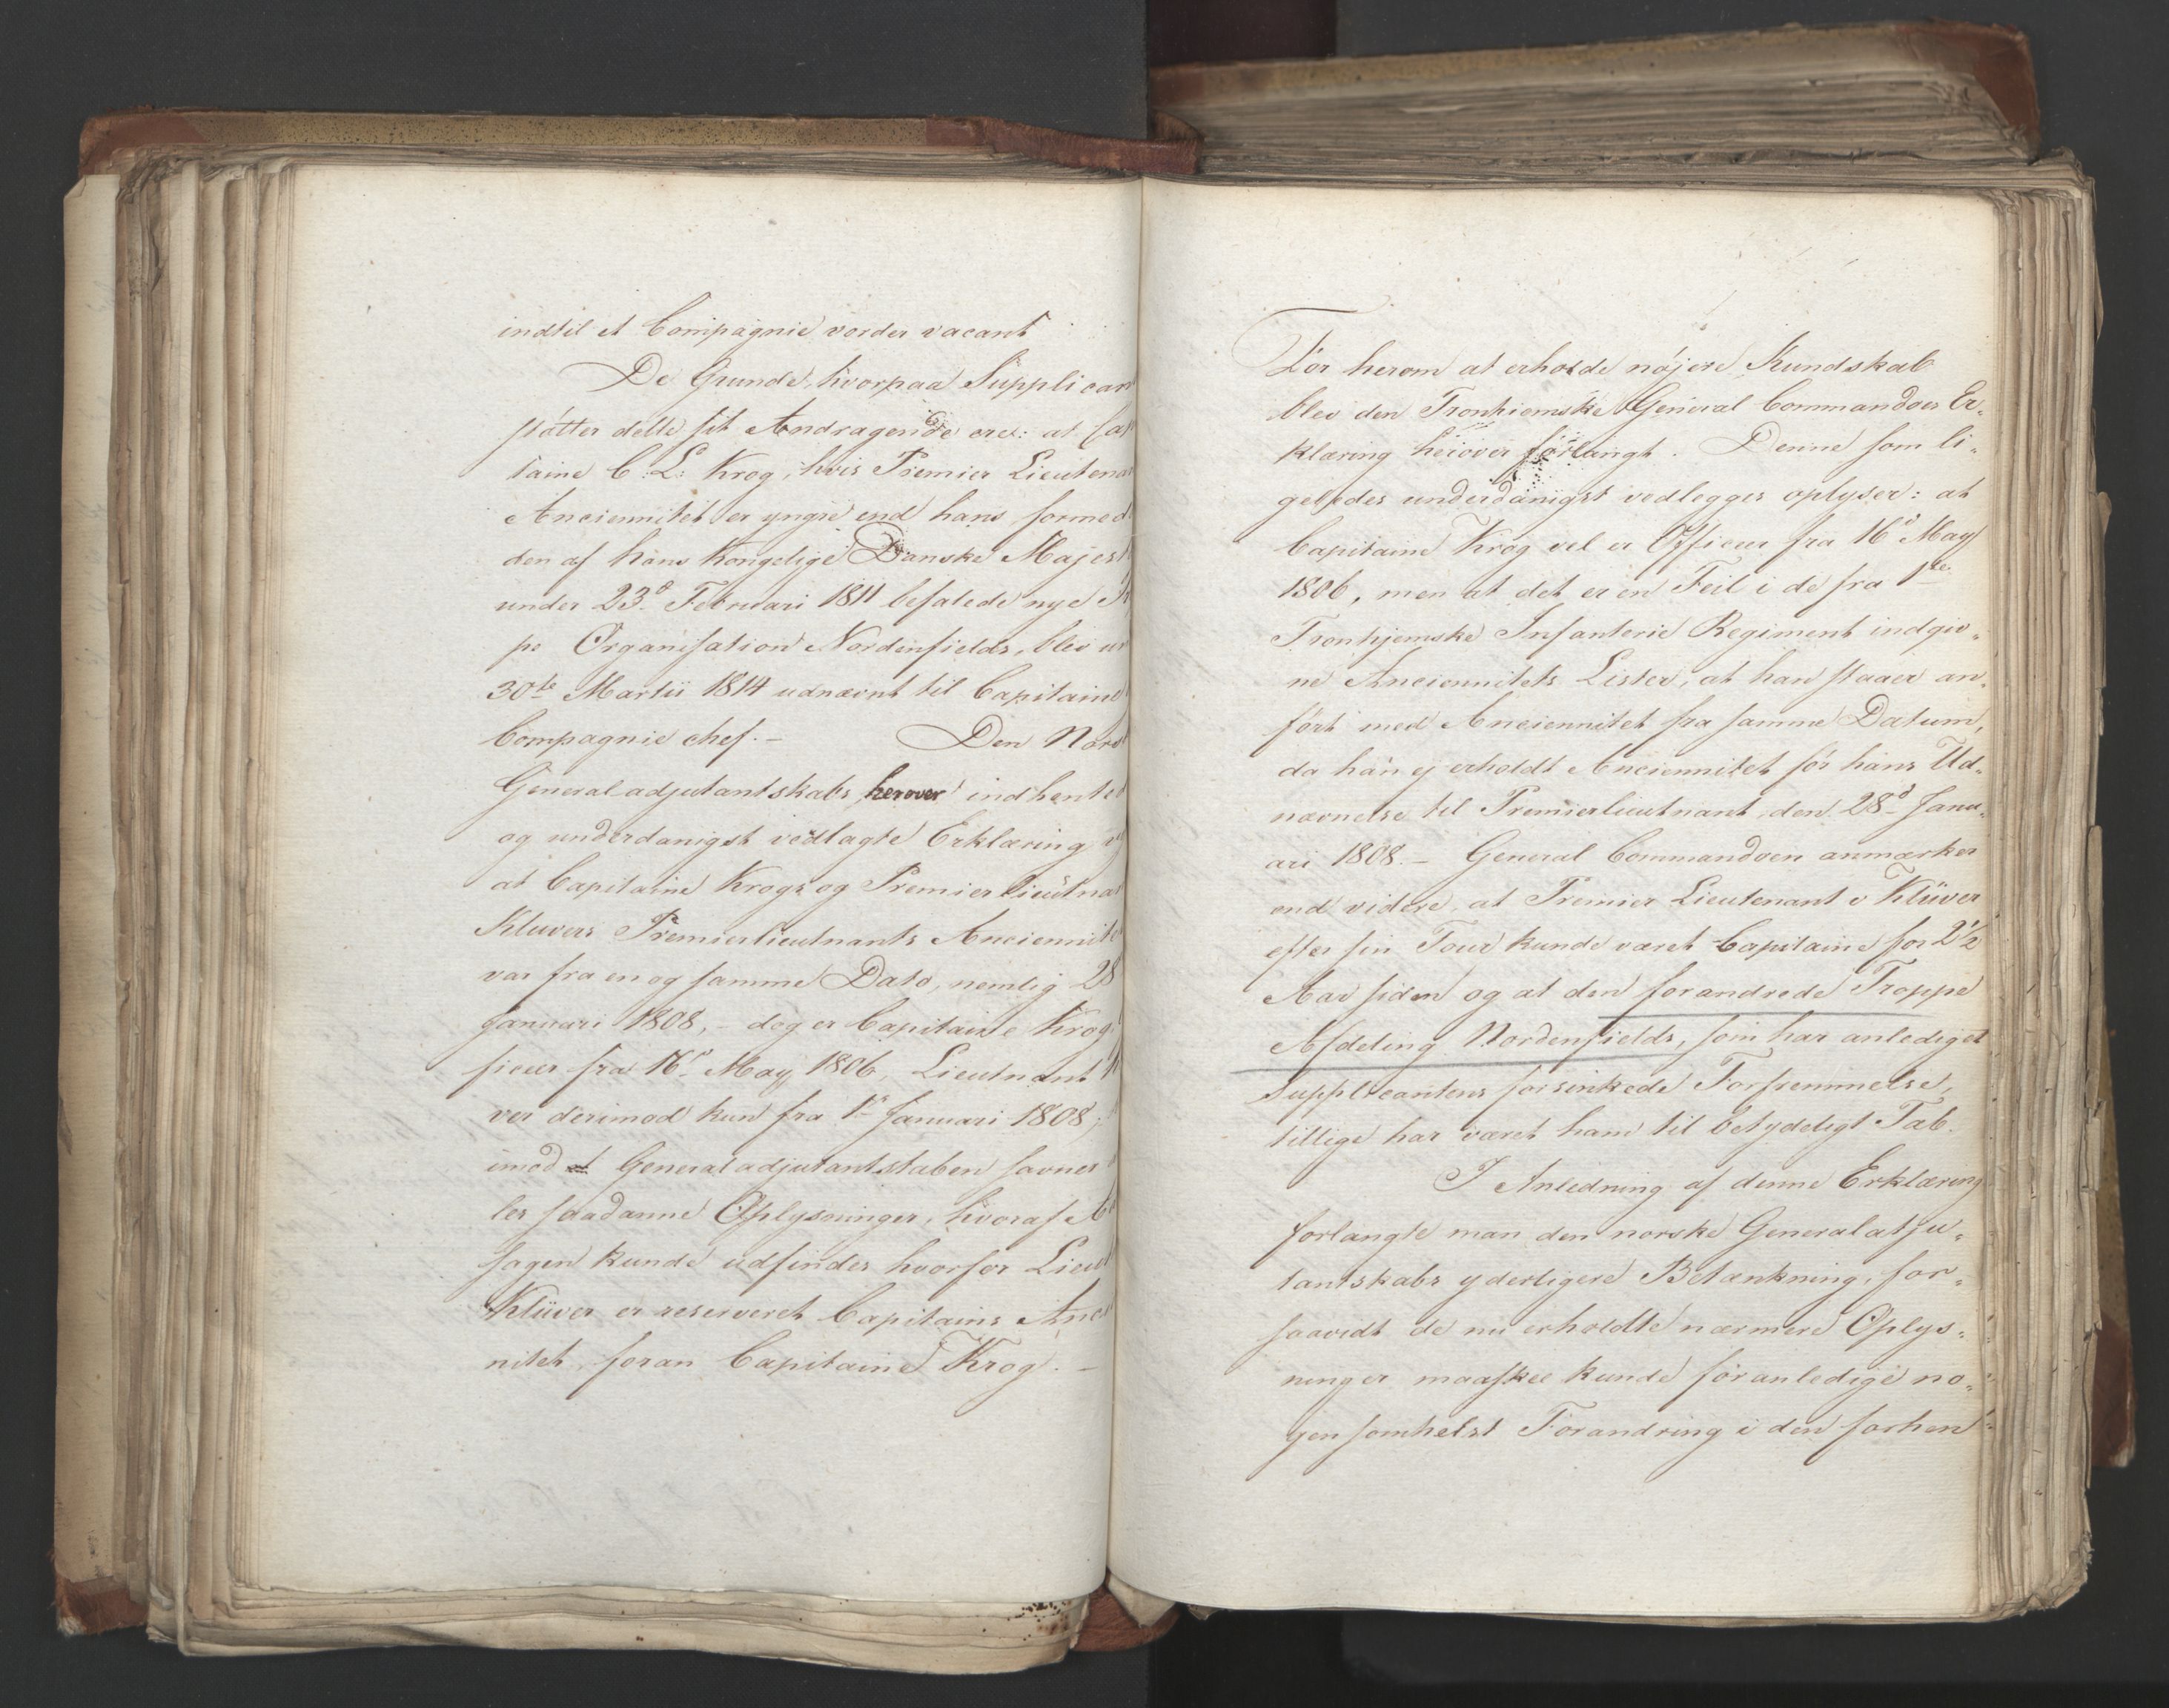 indtil et Compagnie vorder vacant
De Grunde, hvorpaa Supplican
støtter dette sit Andragende ere: at Cap
taine C: L: Krog, hvis Premier Lieutena
Anciennitet er yngre end hans formed
den af hans Kongelige Danske Majest
under 23d Februari 1811 befalede nye
pe Organisation Nordenfields, blev un
30te Martii 1814 udnævnt til Capitaine
Compagnie chef. – Den Nors
Generaladjutantskabs herover indhente
og underdanigst vedlagte Erklæring
at Capitaine Krogs og Premierlieutna
Kluvers Premierlieutnants Ancienite
var fra en og samme Dato, nemlig 28
Januari 1808, – dog er Capitaine Krog
ficeer fra 16d May 1806, Lieutnant
ver derimod kun fra 1d Januari 1808,
imod at Generaladjutantstaben savner
ler saadanne Oplysninger, hvoraf A
sagen kunde udfindes hvorfor Lieut
Klüver er reserveret Capitains Anci
nitet, foran Capitaine Krog. –
For herom at erholde nøjere Kundskab
blev den Tronhiemske General Commandoes Er-
klæring herover forlangt. Denne som li-
geledes underdanigst vedlegges oplyser: at
Capitaine Krog vel er Officeer fra 16d May
1806, men at det er en Feil i de fra 1ste
Tronhjemske Infanterie Regiment indgiv-
ne Anciennitets Lister, at han staaer an-
ført med Anciennitet fra samme Datum,
da han ej erholdt Anciennitet før hans Ud-
nævnelse til Premierlieutnant, den 28d Janu-
ari 1808. – General Commandoen anmærker
end videre, at Premier Lieutenant v Klüver
efter sin Tour kunde været Capitaine for 2 1/2
Aar siden og at den forandrede Troppe
Afdeling Nordenfields, som har anlediget
Supplicantens forsinkede Forfremmelse,
tillige har været ham til betydeligt Tab.
I Anledning af denne Erklæring
forlangte man den norske Generalatju-
tantskabs yderligere Betænkning, for-
saavidt de nu erholdte nærmere Oplys-
ninger maaskee kunde foranledige no-
gensomhelst Forandring i den forhen